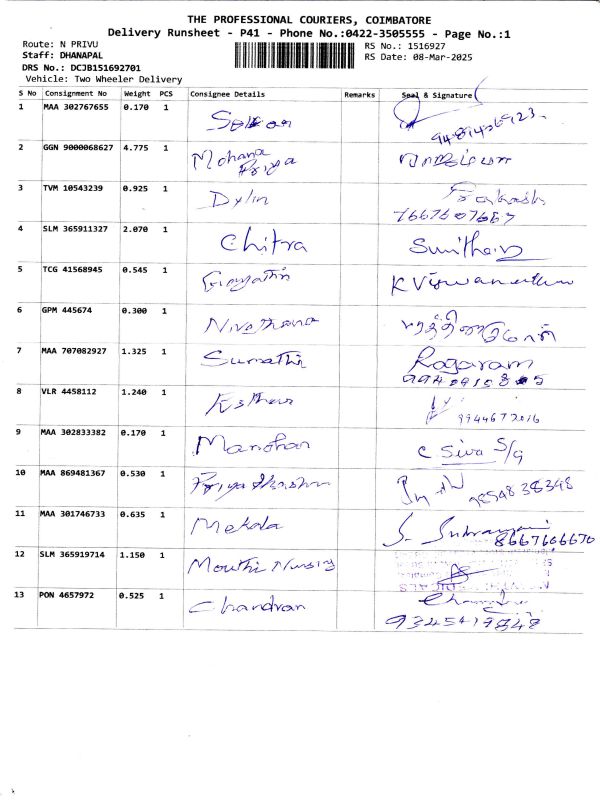 THE PROFESSIONAL COURIERS, COIMBATORE
Delivery Runsheet - P41 - Phone No.:0422-3505555 - Page No.:1
Route: N PRIVU RS No.: 1516927
Staff: DHANAPAL RS Date: 08-Mar-2025
DRS No.: DCJB151692701
Vehicle: Two Wheeler Delivery
S No Consignment No Weight PCS Consignee Details Remarks Seal & Signature
1 MAA 302767655 0.170 1
2 GGN 9000068627 4.775 1 Mohana Priya
3 TVM 10543239 0.925 1 Dylin
7667607667
4 SLM 365911327 2.070 1 Chitra
5 TCG 41568945 0.545 1
6 GPM 445674 0.300 1
7 MAA 707082927 1.325 1 Sumathi Ragaram
8 VLR 4458112 1.240 1 Esther
9 MAA 302833382 0.170 1 Manohar C Siva S/g
10 MAA 869481367 0.530 1
11 MAA 301746733 0.635 1 Mekala
8667606670
12 SLM 365919714 1.150 1
13 PON 4657972 0.525 1 Chandran